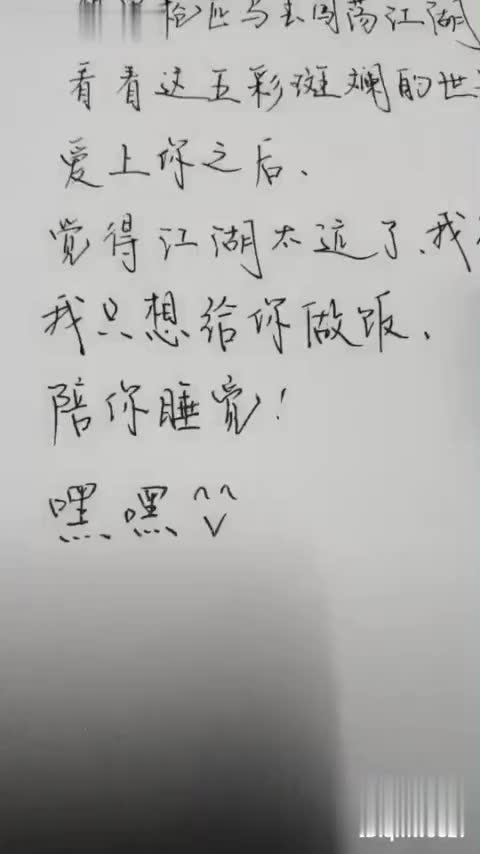 抢匹马去闯荡江湖
看看这五彩斑斓的世
爱上你之后、
觉得江湖太远了、我
我只想给你做饭、
陪你睡觉！
嘿嘿